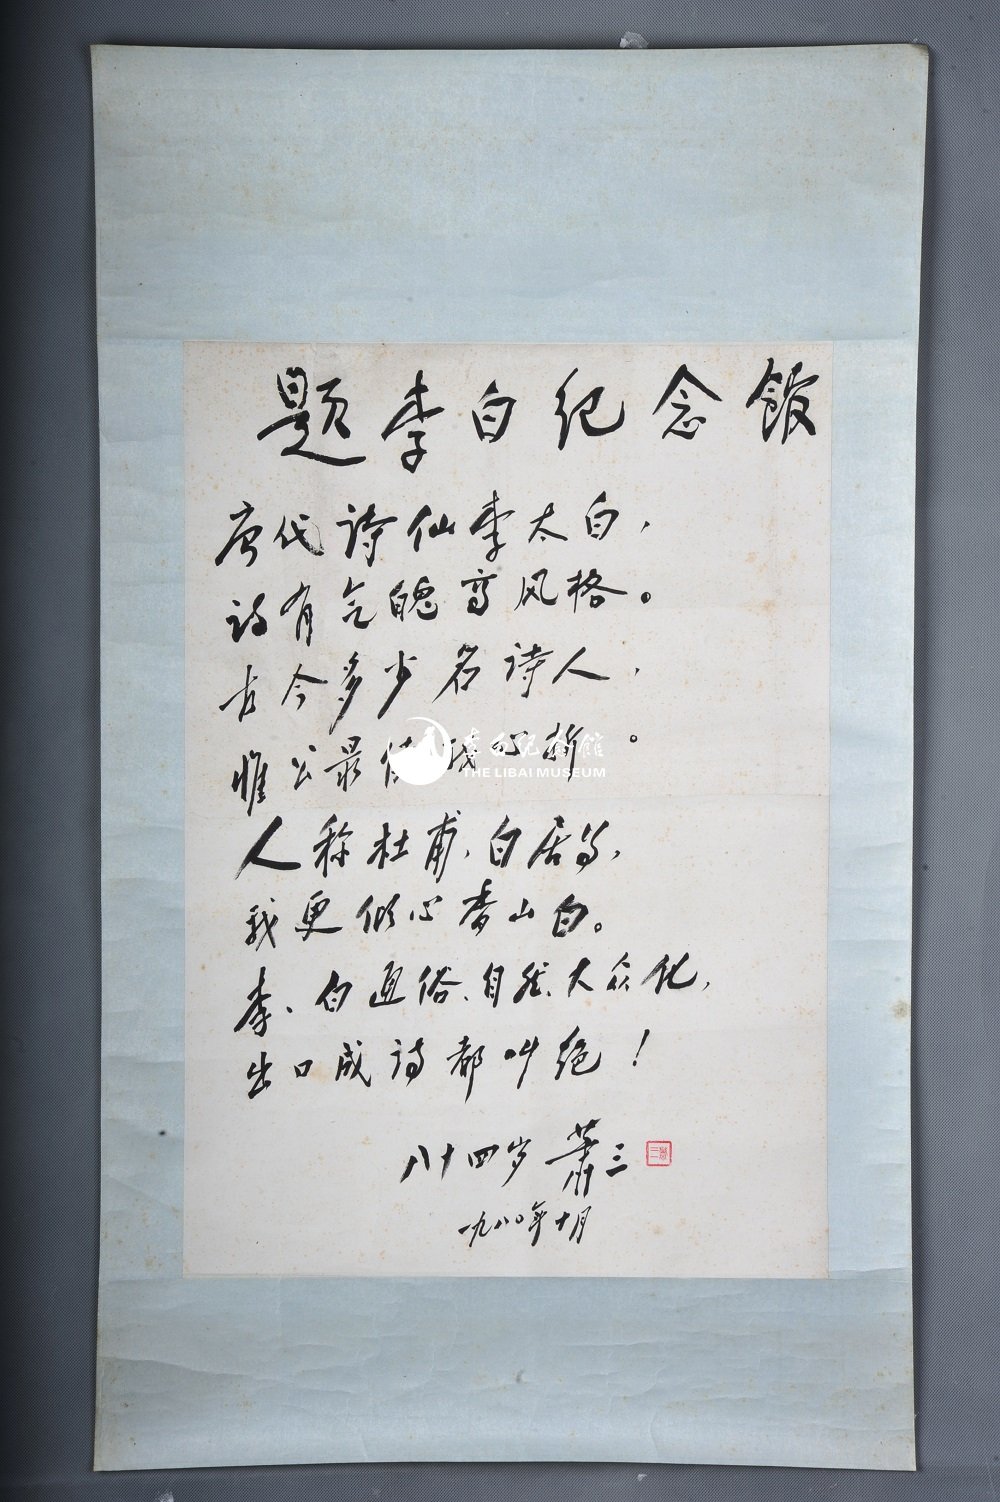 题李白纪念馆
唐代诗仙李太白，
诗有气魄高风格。
古今多少名诗人，
惟公最使我心折。
人称杜甫、白居易，
我更倾心李白。
李、白通俗、自然、大众化，
出口成诗都叫绝！
八十四岁 萧三
一九八〇年十月
李白纪念馆
THE LIBAI MUSEUM